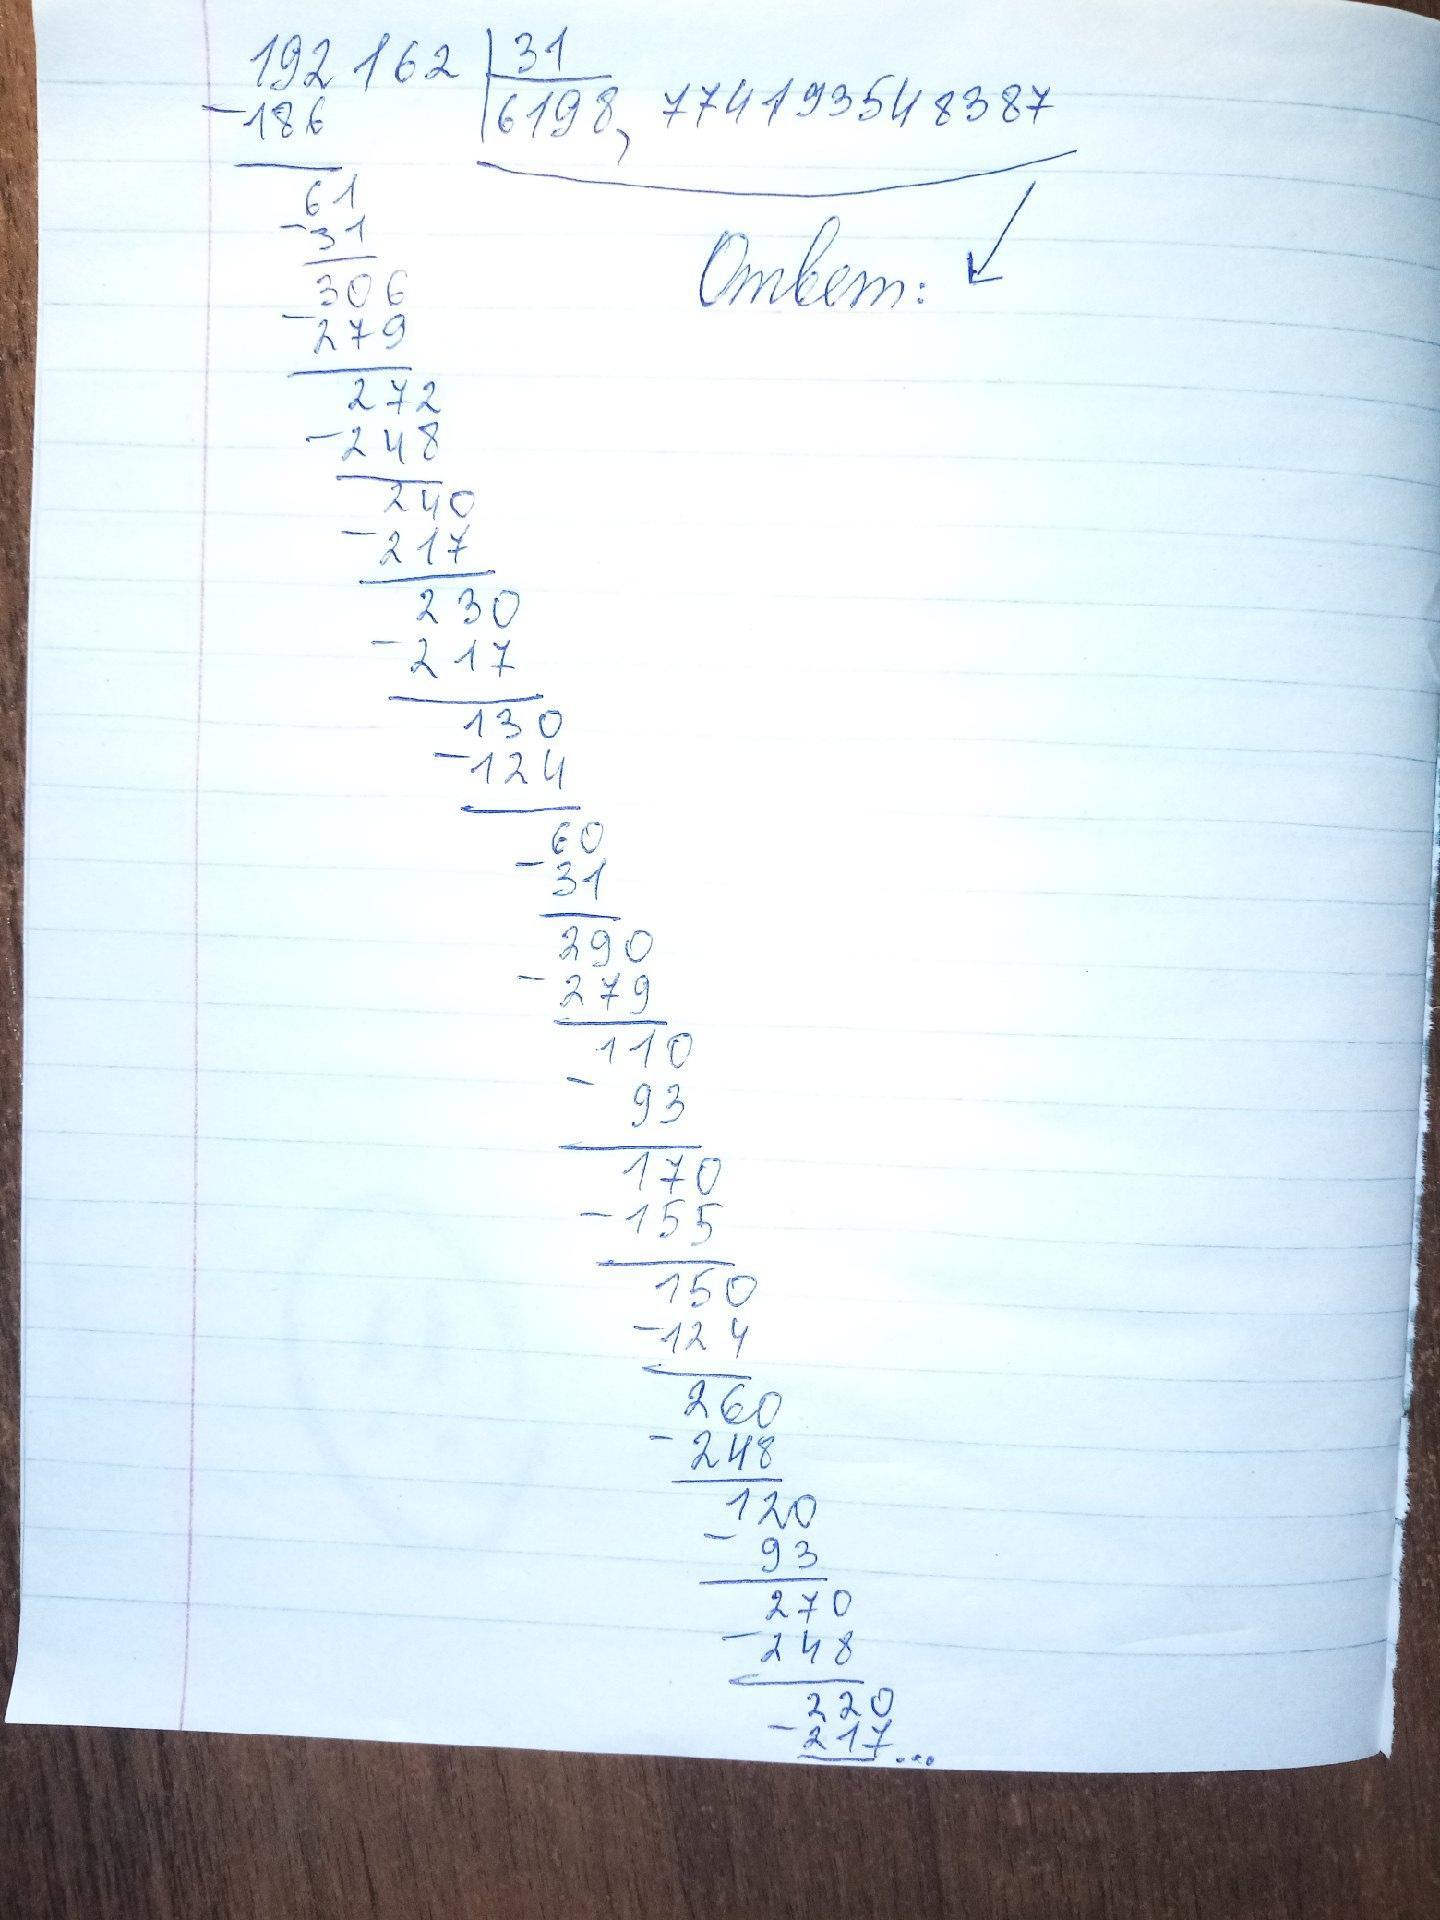 192 162 31
-186 6198, 774193548387
61
-31
Ответ:
306
-279
272
-248
240
-217
230
-217
130
-124
60
-31
290
-279
110
- 93
170
-155
150
-124
260
-248
120
- 93
270
-248
220
-217...